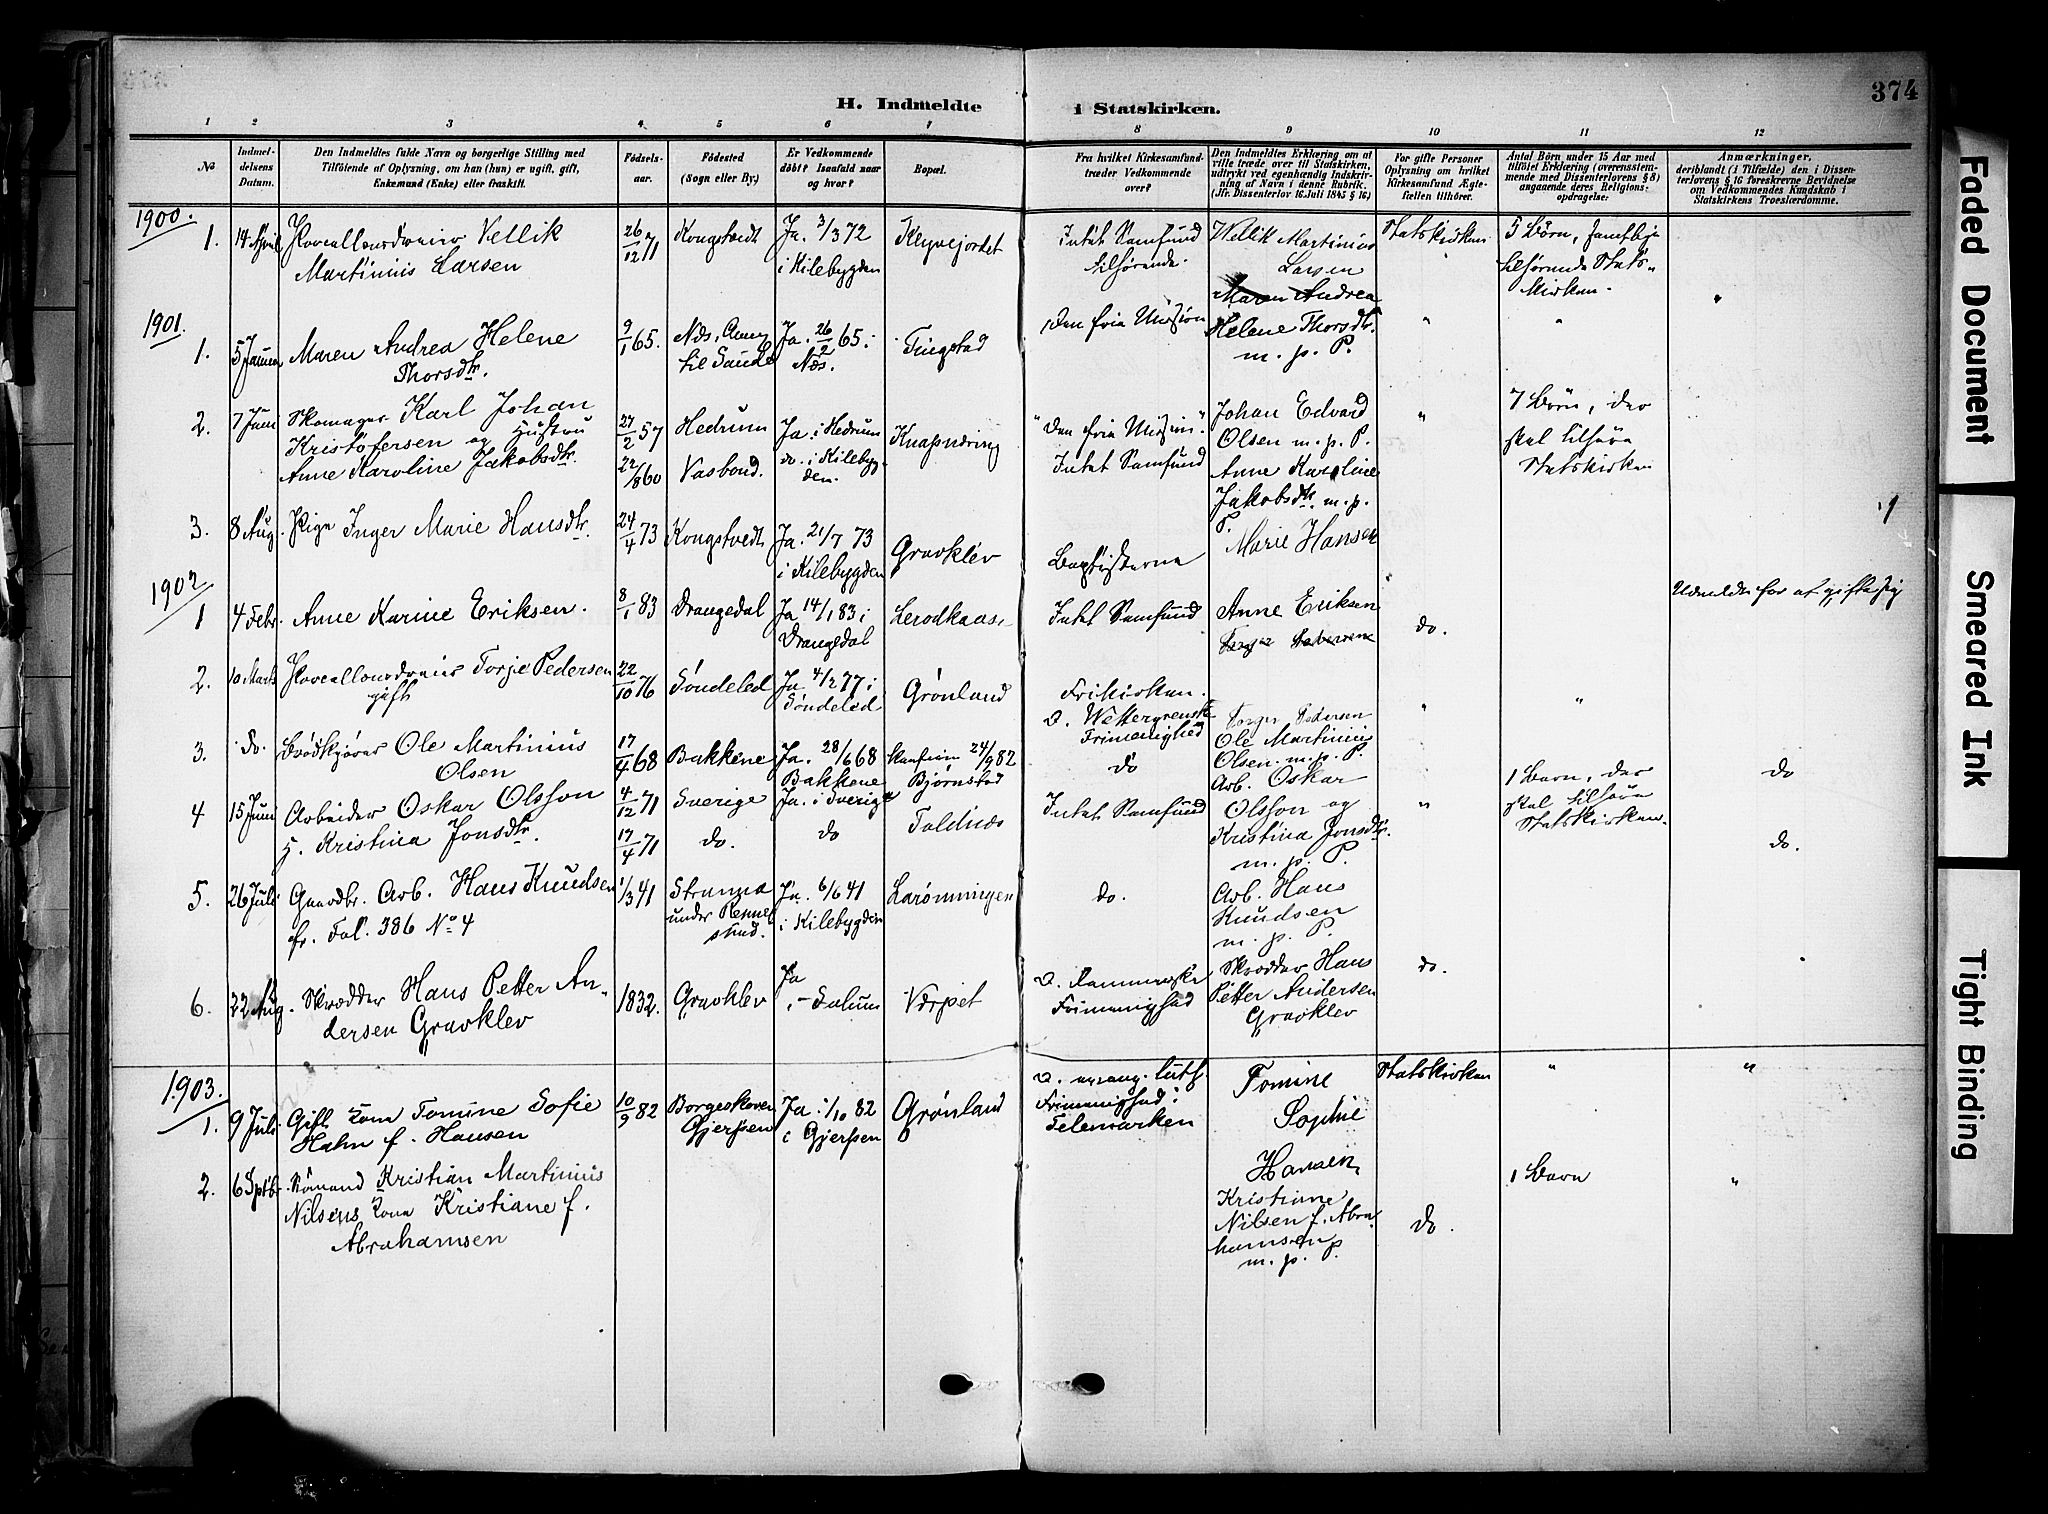 374
H. Indmeldte i Statskirken.
1 2 3 4 5 6 7 8 9 10 11 12
No
Indmel-
delsens
Datum.
Den Indmeldtes fulde Navn og borgerlige Stilling med
Tilföiende af Oplysning, om han (hun) er ugift, gift,
Enkemand (Enke) eller fraskilt.
Födsels-
aar.
Födested
(Sogn eller By.)
Er Vedkommende
döbt? Isaafald naar
og hvor?
Bopæl.
Fra hvilket Kirkesamfund
træder Vedkommende
over?
Den Indmeldtes Erklæring om at
ville træde over til Statskirken,
udtrykt ved egenhændig Indskriv-
ning af Navn i denne Rubrik.
(Jfr. Dissenterlov 16 Juli 1845 § 16)
For gifte Personer
Oplysning om hvilket
Kirkesamfund Ægte-
fællen tilhörer.
Antal Börn under 15 Aar med
tilföiet Erklæring (overensstem-
mende med Dissenterlovens § 8)
angaaende deres Religions-
opdragelse:
Anmærkninger,
deriblandt (i Tilfælde) den i Dissen-
terlovens § 16 foreskrevne Bevidnelse
om Vedkommendes Kundskab i
Statskirkens Troeslærdomme.
1900.
1. 14 April
Vellik
Martinius Larsen
26/12 71
Kongstvedt
Ja. 3/3 72
i Kilebygden
Klyvejordet
Intet Samfund
tilhørende.
Vellik Martinius
Larsen
Statskirken
5 Børn,
tilhørende Stats-
kirken.
1901.
1. 5 Januar
Maren Andrea Helene
Thorsdtr.
9/1 65.
Næs,
til Saude
Ja. 26/2 65 i
Næs.
Tingstad
Den frie Mission
Maren Andrea
Helene Thorsdtr.
m. p. P.
"
"
2. 7 Juni
Skomager Karl Johan
Kristofersen og Hustru
Anne Karoline Jakobsdtr.
27/2 57
22/8 60
Hedrum
Vasbond.
Ja. i Hedrum
do. i Kilebyg-
den.
Knapnæring
"Den frie Mission."
Intet Samfund
Johan Edvard
Olsen m. p. P.
Anne Karoline
Jakobsdtr. m. p.
P.
"
7 Børn, der
skal tilhøre
Statskirken
3. 8 Aug.
Pige Inger Marie Hansdtr.
24/4 73
Kongstvedt
Ja. 21/7 73
i Kilebygden
Gravklev
Baptisterne
Marie Hansen
1902
1 4 Febr.
Anne Karine Eriksen.
8/1 83
Drangedal
Ja 14/1 83 i
Drangedal
Intet Samfund
Anne Eriksen
do.
Udmeldt for at gifte sig
2. 10 Marts
Torje Pedersen
gift
22/10 76
Søndeled
Ja. 4/2 77 i
Søndeled
Grønland
Frikirken.
Torger Pedersen
"
"
3. do.
Brødkjører Ole Martinius
Olsen
17/4 68
Bakkene
Ja. 28/6 68
Bakkene
24/9 82
Bjørnstad
D. Wettergrenske
Frimenighed
do
Ole Martinius
Olsen. m. p. P.
do
4 15 Juni
Arbeider Oskar Olsson
H. Kristina Jonsdtr.
4/12 71
17/4 71
Sverige
do.
Ja. i Sverige
do
Toldnæs
Intet Samfund
Arb. Oskar
Olsson og
Kristina Jonsdtr.
m. p. P.
"
1 Barn, der
skal tilhøre
Statskirken.
do.
5. 26 Juli
Gaardbr. Arb. Hans Knudsen
fr. Fol. 386 No 4
1/3 41
under
Ja. 6/6 41
i Kilebygden
Larønningen
do.
Arb. Hans
Knudsen
m. p. P.
6. 22 Aug.
Skrædder Hans Petter An-
dersen Gravklev
1832.
Gravklev
Ja
i Solum
Værpet
D. Lammerske
Frimenighed
Skrædder Hans
Petter Andersen
Gravklev
do.
1903.
1. 9 Juli
Gift Kone Tomine Sofie
Hahn f. Hansen
10/9 82
Borgeskoven
Gjerpen
Ja 1/10 82
i Gjerpen
Grønland
D. evang. luth.
Frimenighed i
Telemarken
Tomine
Sophie
Hansen,
Statskirken
"
"
2. 6 Sptbr.
Sømand Kristian Martinius
Nilsens Kone Kristiane f.
Abrahamsen
Kristiane
Nilsen f. Abra-
hamsen
m. p. P.
do.
1 Barn
"
Faded Document
Smeared Ink
Tight Binding